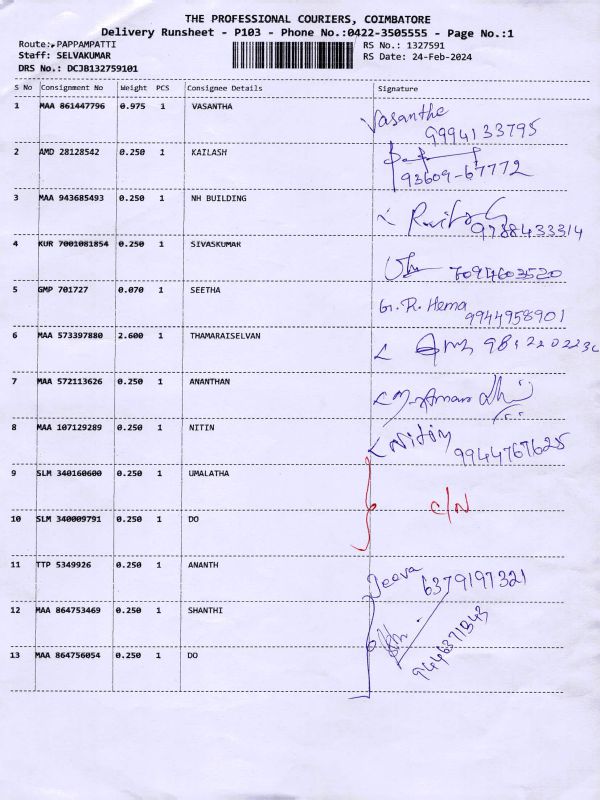 THE PROFESSIONAL COURIERS, COIMBATORE
Delivery Runsheet - P103 - Phone No.:0422-3505555 - Page No.:1
Route: PAPPAMPATTI RS No.: 1327591
Staff: SELVAKUMAR RS Date: 24-Feb-2024
DRS No.: DCJB132759101
S No Consignment No Weight PCS Consignee Details Signature
1 MAA 861447796 0.975 1 VASANTHA Vasantha
9994133795
2 AMD 28128542 0.250 1 KAILASH
93609-67772
3 MAA 943685493 0.250 1 NH BUILDING
9788433314
4 KUR 7001081854 0.250 1 SIVASKUMAR
7094603520
5 GMP 701727 0.070 1 SEETHA G.R. Hema
9944958901
6 MAA 573397880 2.600 1 THAMARAISELVAN
7 MAA 572113626 0.250 1 ANANTHAN
8 MAA 107129289 0.250 1 NITIN Nitin
9944767625
9 SLM 340160600 0.250 1 UMALATHA
C/N
10 SLM 340009791 0.250 1 DO
11 TTP 5349926 0.250 1 ANANTH Jeeva
6379197321
12 MAA 864753469 0.250 1 SHANTHI
9446371343
13 MAA 864756054 0.250 1 DO